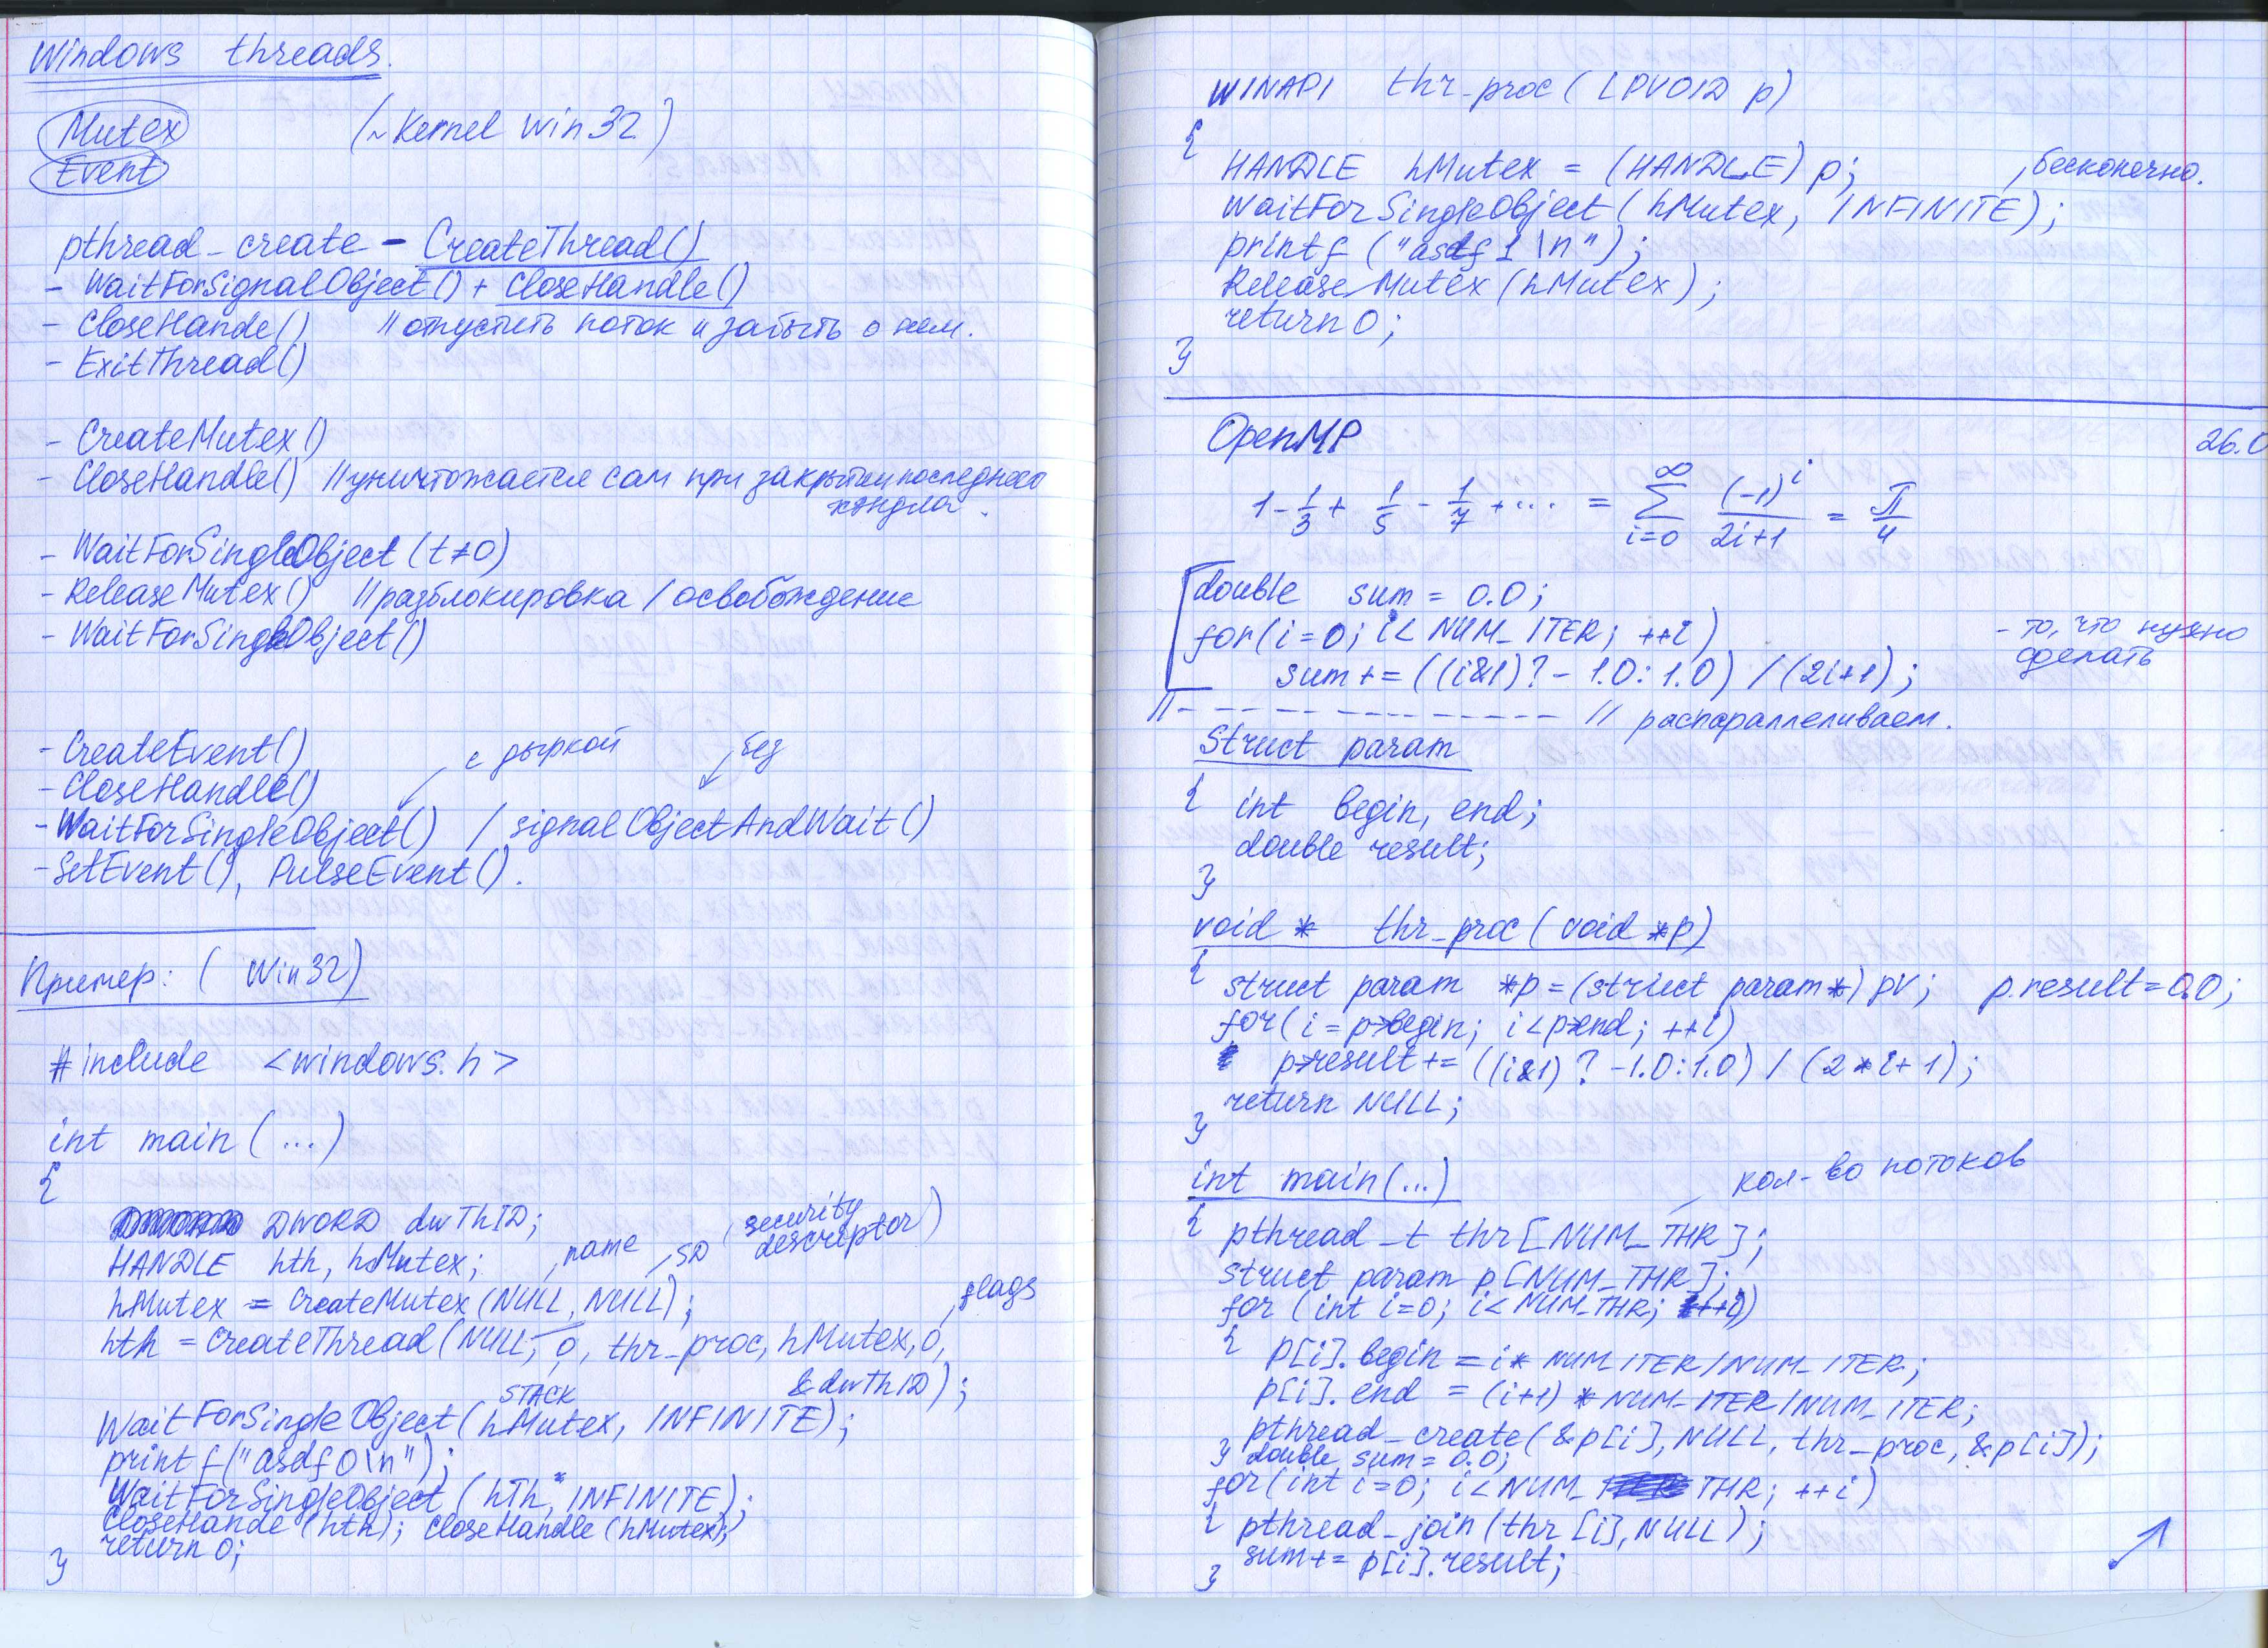 Windows threads.
Mutex (~Kernel win32)
Event
pthread_create - CreateThread()
- WaitForSignalObject() + CloseHandle()
- CloseHande() // отпустить поток и забыть о нем.
- ExitThread()
- CreateMutex()
- CloseHandle() // уничтожается сам при закрытии последнего
хэндла.
- WaitForSingleObject (t≠0)
- ReleaseMutex() // разблокировка / освобождение
- WaitForSingleObject()
- CreateEvent() с дыркой без
- CloseHandle()
- WaitForSingleObject() / signalObjectAndWait()
- SetEvent(), PulseEvent().
Пример: ( Win32)
#include <windows.h>
int main (...)
{
DWORD dwThID; (security
HANDLE hth, hMutex; name SD descriptor)
hMutex = CreateMutex(NULL, NULL); flags
hth = CreateThread(NULL, 0, thr_proc, hMutex, 0,
STACK &dwThID);
WaitForSingleObject(hMutex, INFINITE);
printf("asdf0\n");
WaitForSingleObject (hTh, INFINITE);
CloseHande (hth); CloseHandle (hMutex);
return 0;
}
WINAPI thr_proc (LPVOID p)
{
HANDLE hMutex = (HANDLE) p; бесконечно.
WaitForSingleObject (hMutex, INFINITE);
printf ("asdf1\n");
ReleaseMutex (hMutex);
return 0;
}
OpenMP 26.0
1 - 1/3 + 1/5 - 1/7 + ... = ∑ i=0 ∞ (-1)^i / 2i+1 = π/4
double sum = 0.0;
for(i=0; i< NUM_ITER; ++i) - то, что нужно
сделать
sum += ((i&1)? - 1.0 : 1.0) / (2i+1);
//- - - - - - - - - - - - - - // распараллеливаем.
Struct param
{ int begin, end;
double result;
}
void * thr_proc ( void *p)
{ struct param *p = (struct param*) pv; p.result = 0.0;
for( i = p->begin; i < p->end; ++i)
p->result += ((i&1) ? -1.0 : 1.0) / (2 * i + 1);
return NULL;
}
int main(...) кол-во потоков
{ pthread_t thr[NUM_THR];
Struct param p[NUM_THR];
for (int i=0; i< NUM_THR; ++i)
{ p[i].begin = i* NUM_ITER/NUM_ITER;
p[i].end = (i+1) * NUM_ITER/NUM_ITER;
pthread_create(&p[i], NULL, thr_proc, &p[i]);
} double sum = 0.0;
for(int i=0; i< NUM_THR; ++i)
{ pthread_join (thr[i], NULL);
sum += p[i].result;
}